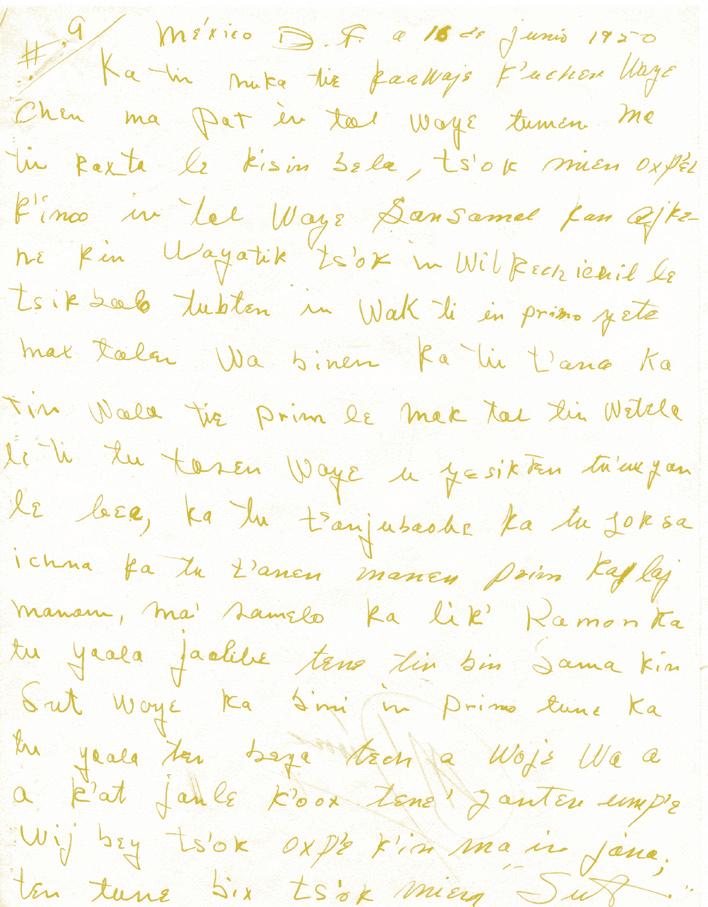 # 9 México D.F. a 16 de junio 1950
Ka tin nuka tie kaawaje k'uchen Waye
Chen ma pat in tal waye tumen ma
tin kaxta le kisin bela, ts'ok mien oxp'el
k'inoo in tal Waye Sansamal kan ajke-
ne kin Wayatik ts'ok in Wil kech ichil le
tsikbalo tubten in Wak ti in primo yete
max talen Wa binen ka tin t'ana ka
tin Wala tie prim le mak tal tin Wetela
le ti tu tasen Waye u yesikten tu'uxyan
le bea, ka tu t'anjubaobe ka tu joksa
ichna ka tu t'anen manen prim kaj laj
manom, ma' samelo ka lik' Ramon ka
tu yaala jaalibe tene tin bin sama kin
Sut waye ka bini in primo tune ka
tu yaala ten beya tech a woje Wa a
a k'at janle k'oox tene' yanten ump'e
Wij bey ts'ok oxp'e k'in ma in jana;
ten tune bix ts'ok mien "Sut."